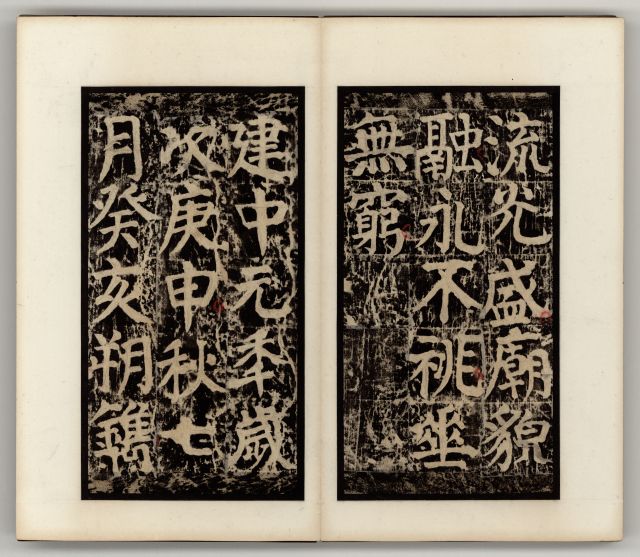 流光盛廟貌
融永不祧垂
無窮
建中元年歲
次庚申秋七
月癸亥朔鐫